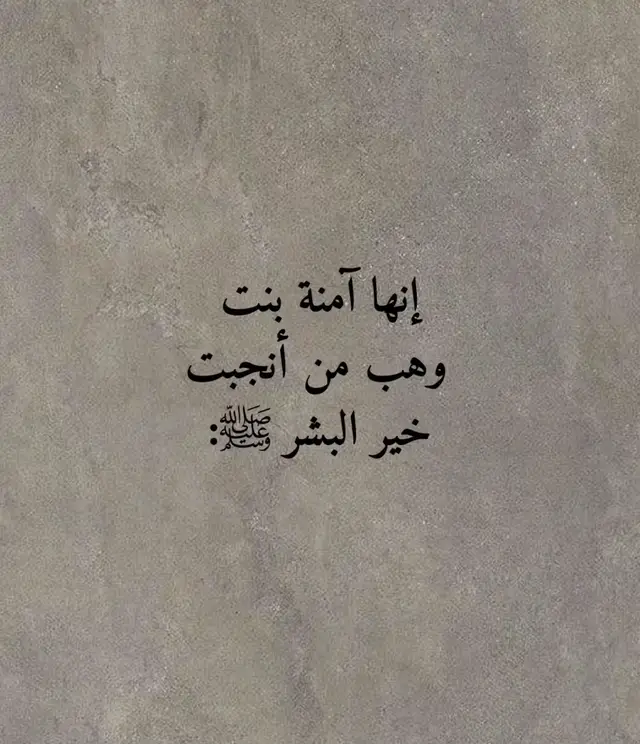 إنها آمنة بنت
وهب من أنجبت
خير البشر ﷺ: